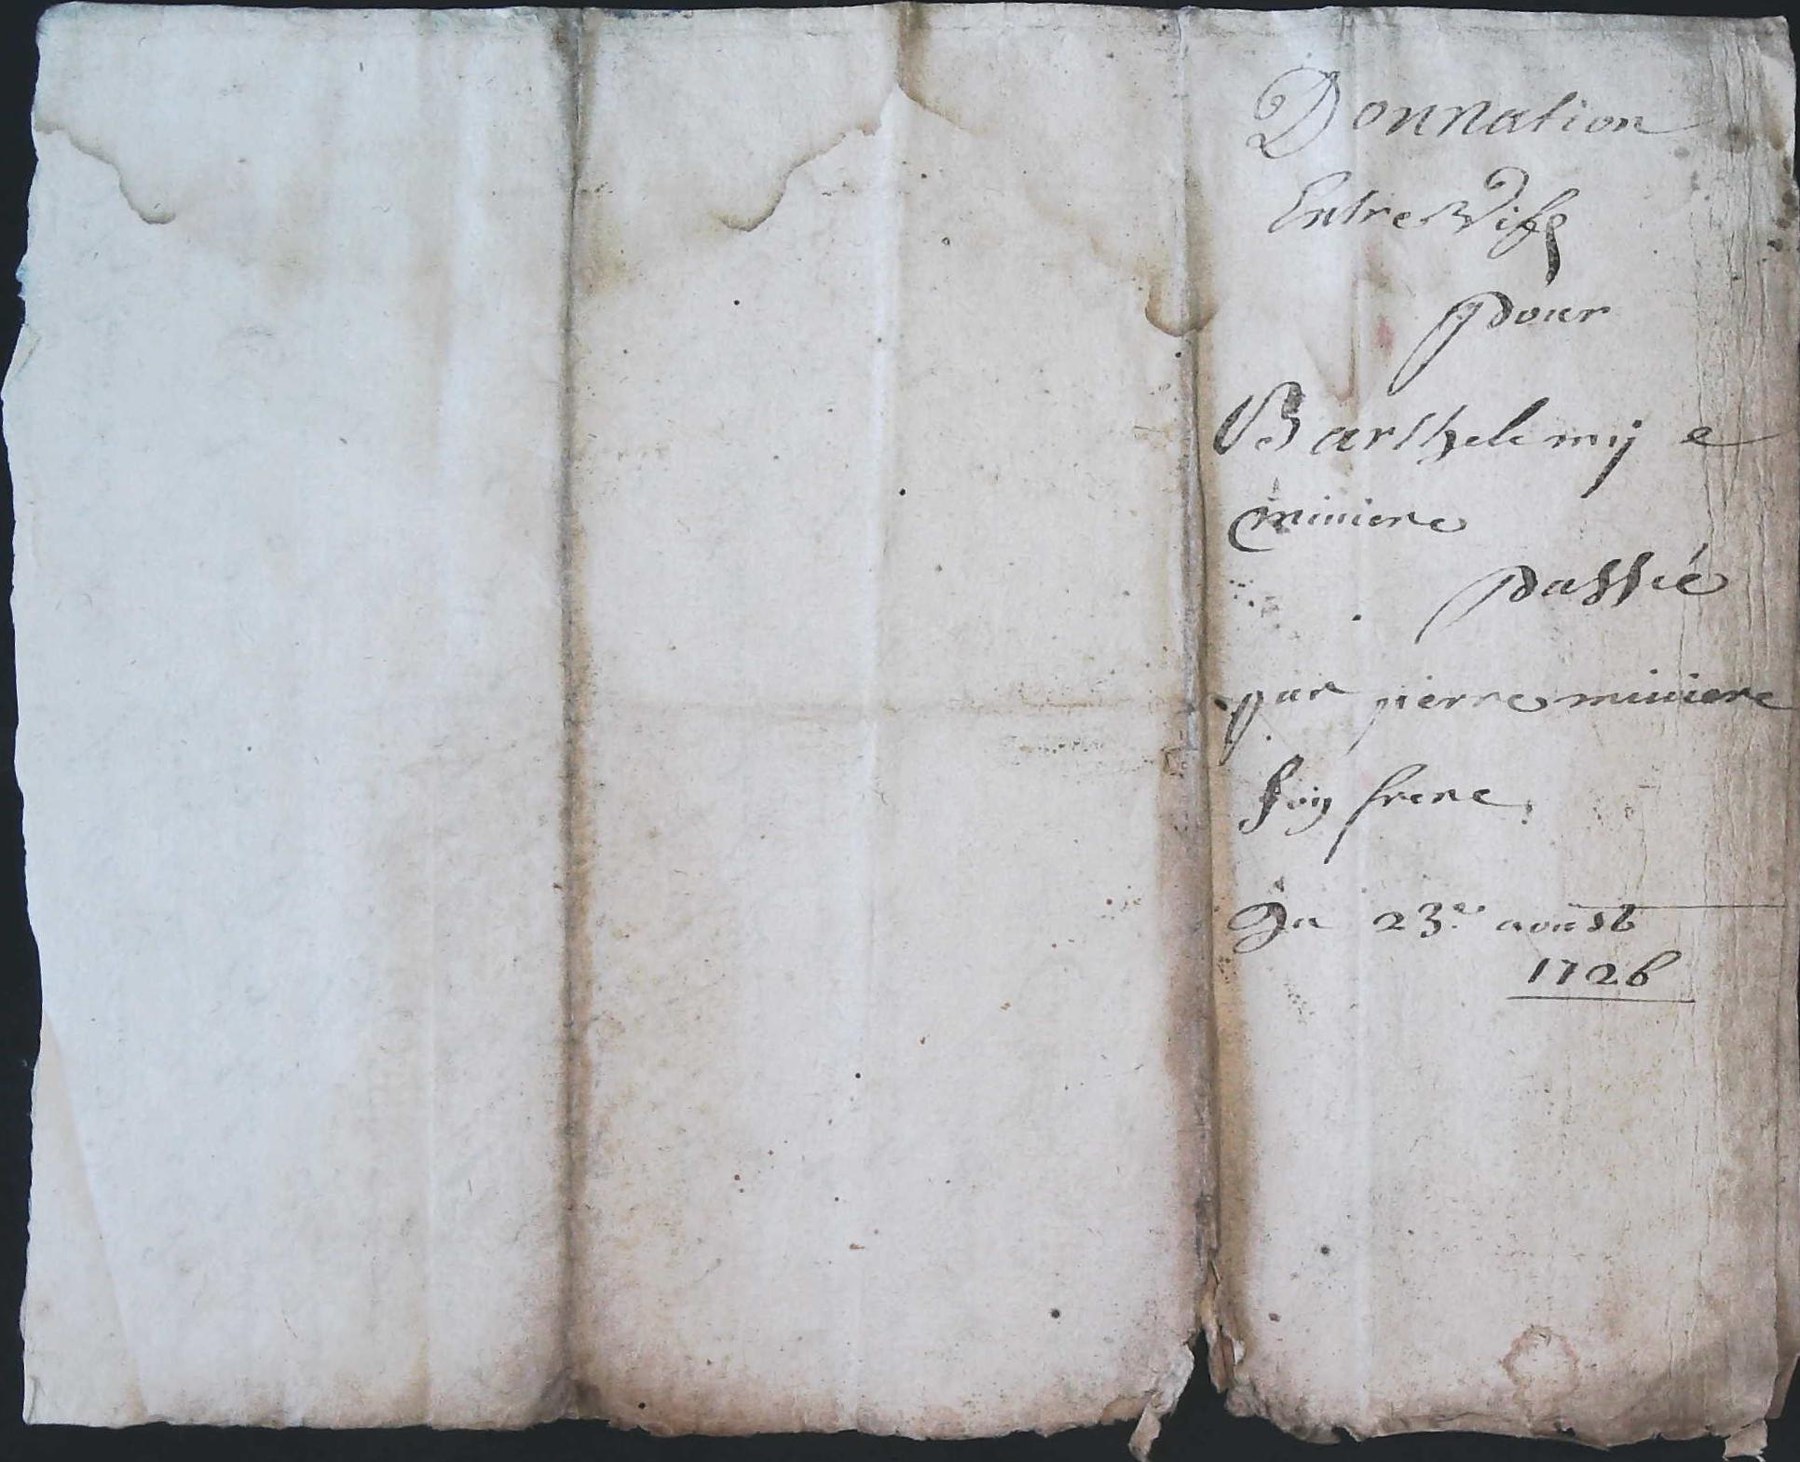 Donnation
Entre Vifs
pour
Barthelemy
miniere
passée
par pierre miniere
son frere
Du 23e aoust
1726